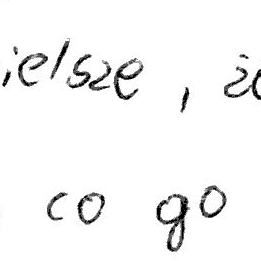 ielsze, że
co go